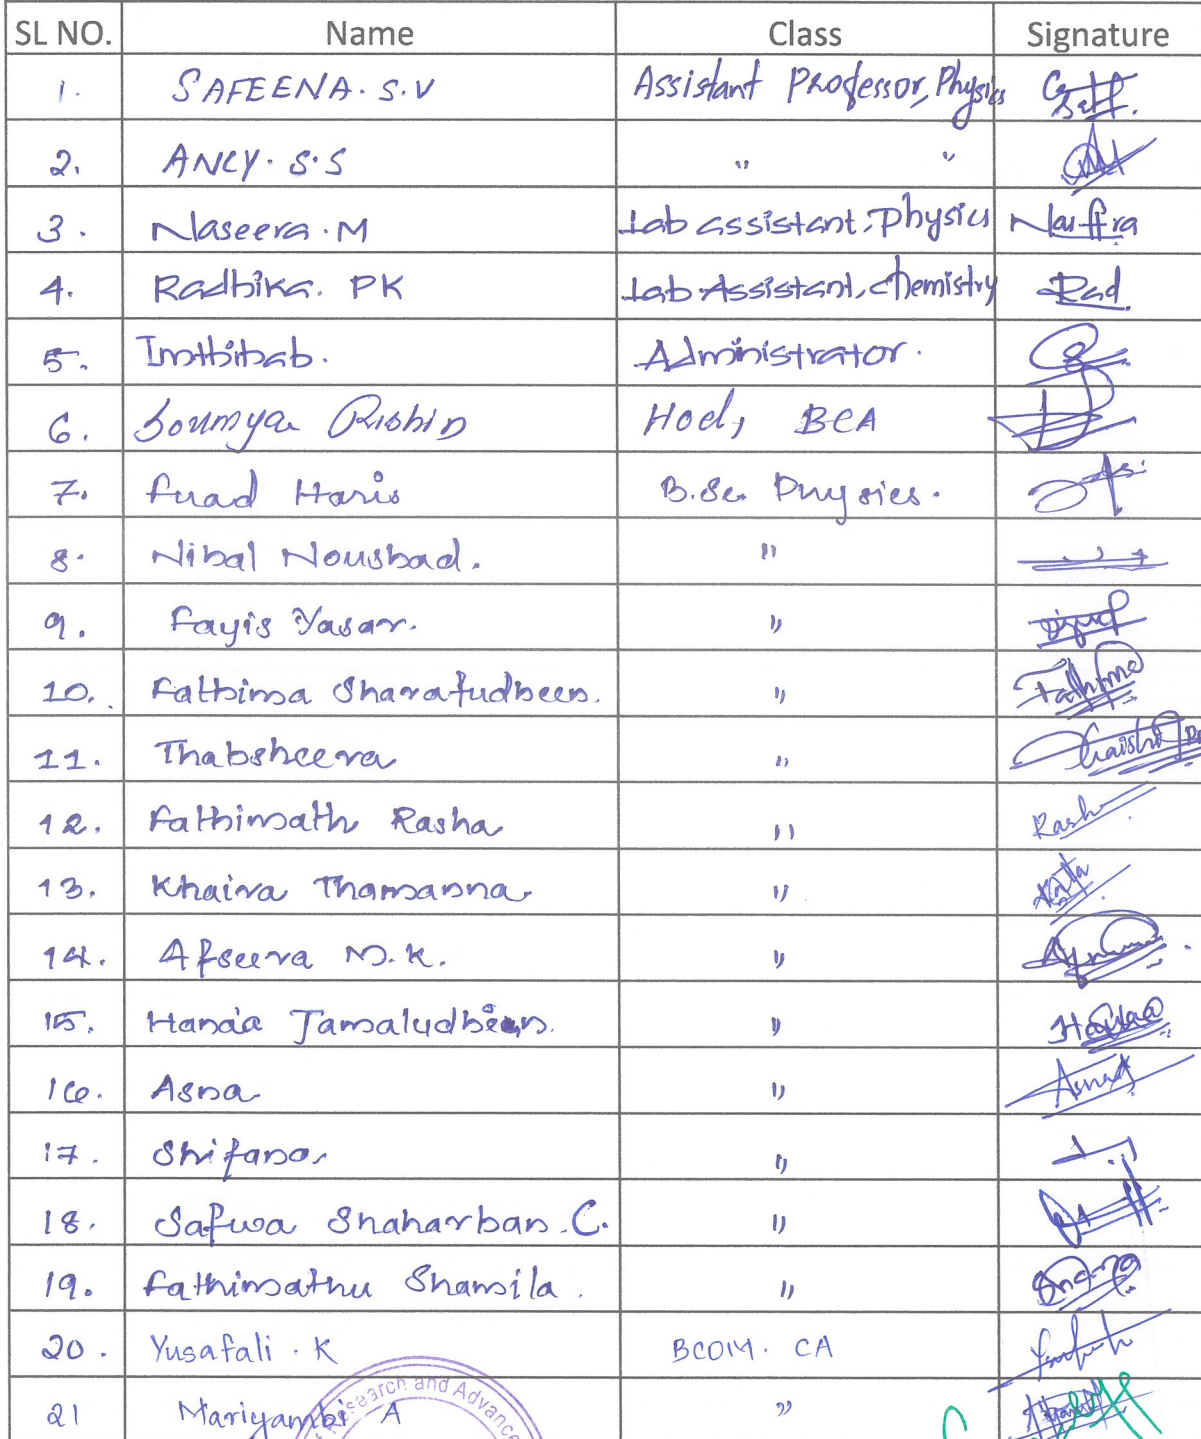 SL NO. Name Class Signature
1. SAFEENA. S.V Assistant Professor, Physics
2. ANCY. S.S " "
3. Naseera. M Lab assistant, Physics
4. Radhika. PK Lab Assistant, Chemistry Rad.
5. Imthihab. Administrator.
6. Soumya Rishin Hod, BCA
7. Fuad Haris B.Sc. Physics.
8. Nihal Noushad. "
9. Fayis Yasar. "
10. Fathima Sharafudheen. " Fathima
11. Thabsheera "
12. Fathimath Rasha " Rasha
13. Khaira Thamanna "
14. Afseera M.K. "
15. Hanaa Jamaludheen. " Hanaa
16. Asna " Asna
17. Shifana "
18. Safwa Shaharban. C. "
19. Fathimathu Shamila. "
20. Yusafali. K BCOM. CA
21 Mariyambi A "
search and Advanc